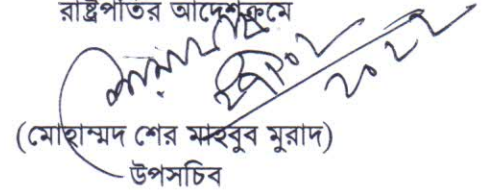 রাষ্ট্রপতির আদেশক্রমে
(মোহাম্মদ শের মাহবুব মুরাদ)
উপসচিব